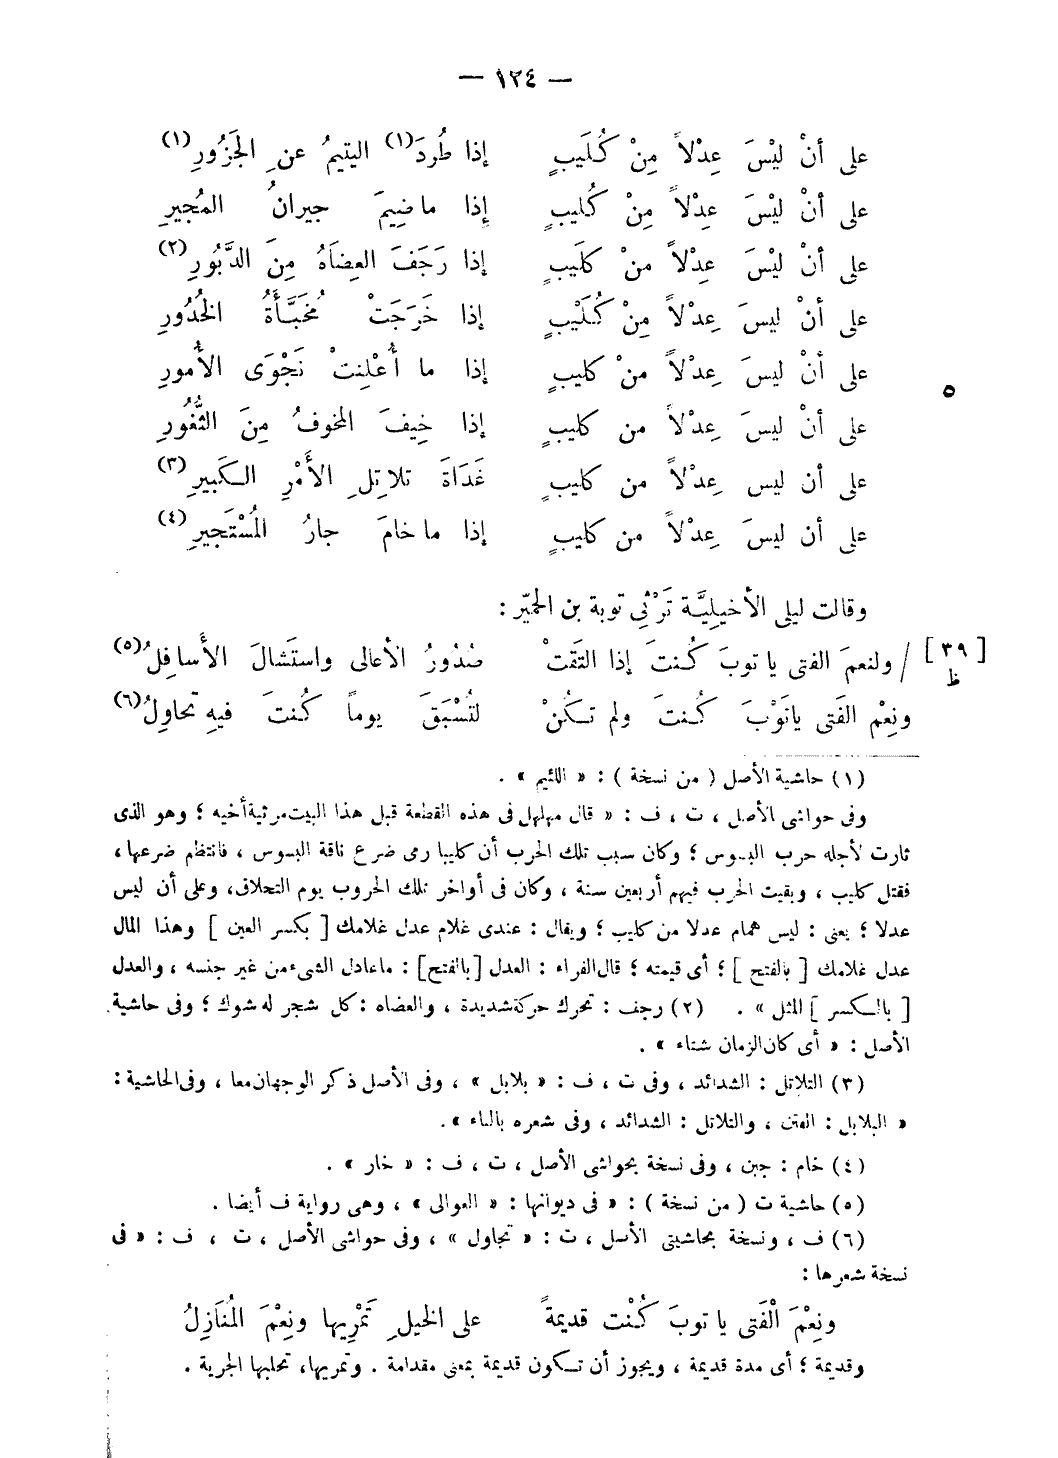 — ١٢٤ —
على أنْ ليْسَ عِدْلاً مِنْ كُلَيبٍ إذا طُرِدَ(١) اليتيمُ عن الجَزُورِ(١)
على أنْ ليْسَ عِدْلاً مِنْ كُليبٍ إذا ماضِيمَ جيرانُ المُجيرِ
على أنْ ليْسَ عِدْلاً منْ كلَيبٍ إذا رَجَفَ العِضَاهُ مِنَ الدَّبُورِ(٢)
على أنْ ليسَ عِدْلاً مِنْ كُلَيْبٍ إذا خَرَجَتْ مُخَبَّأَةُ الخُدُورِ
على أنْ ليسَ عِدْلاً منْ كليبٍ إذا ما أُعْلِنتْ نَجْوَى الأُمورِ
٥
على أنْ ليسَ عِدْلاً من كليبٍ إذا خِيفَ المخوفُ مِنَ الثُّغُورِ
على أن ليس عِدْلاً من كليبٍ غَدَاةَ تلاتِلِ الأَمْرِ الكَبيرِ(٣)
على أن ليسَ عِدْلاً من كليبٍ إذا ماخامَ جارُ المُسْتَجيرِ(٤)
وقالت ليلى الأخيلِيَّة تَرْثِي توبة بن الحميّر :
[ ٣٩ ظ ] / ولنعمَ الفتى ياتوبَ كُنتَ إذا التَقتْ صُدُورُ الأعالى واستَشالَ الأَسافِلُ(٥)
ونِعْم الفَتى ياتَوْبَ كُنتَ ولم تكُنْ لتُسْبَقَ يوماً كُنتَ فيهِ تحاوِلُ(٦)
(١) حاشية الأصل ( من نسخة ) : « اللئيم » .
وفى حواشى الأصل ، ت ، ف : « قال مهلهل فى هذه القطعة قبل هذا البيت مرثية أخيه ؛ وهو الذى
ثارت لأجله حرب البسوس ؛ وكان سبب تلك الحرب أن كليبا رمى ضرع ناقة البسوس ، فانتظم ضرعها ،
فقتل كليب ، وبقيت الحرب فيهم أربعين سنة ، وكان فى أواخر تلك الحروب يوم التحلاق، وعلى أن ليس
عدلا ؛ يعنى : ليس همام عدلا من كليب ؛ ويقال : عندى غلام عدل غلامك [ بكسر العين ] وهذا المال
عدل غلامك [ بالفتح ] ؛ أى قيمته ؛ قال الفراء : العدل [بالفتح] : ماعادل الشىء من غير جنسه ، والعدل
[ بالكسر ] المثل » . (٢) رجف : تحرك حركة شديدة ، والعضاه : كل شجر له شوك ؛ وفى حاشية
الأصل : « أى كان الزمان شتاء » .
(٣) التلاتل : الشدائد ، وفى ت ، ف : « بلابل » ، وفى الأصل ذكر الوجهان معا ، وفى الحاشية :
« البلابل : الفتن ، والتلاتل : الشدائد ، وفى شعره بالباء » .
(٤) خام : جبن ، وفى نسخة بحواشى الأصل ، ت ، ف : « خار » .
(٥) حاشية ت ( من نسخة ) : « فى ديوانها : « العوالى » ، وهى رواية ف أيضا .
(٦) ف ، ونسخة بحاشيتى الأصل ، ت : « تجاول » ، وفى حواشى الأصل ، ت ، ف : « فى
نسخة شعرها :
ونِعْمَ الْفَتى ياتوبَ كُنْت قديمةً على الخيلِ تَمْرِيها ونِعْمَ المُنَازِلُ
وقديمة ؛ أى مدة قديمة ، ويجوز أن تكون قديمة بمعنى مقدامة . وتمريها، تحلبها الجرية .